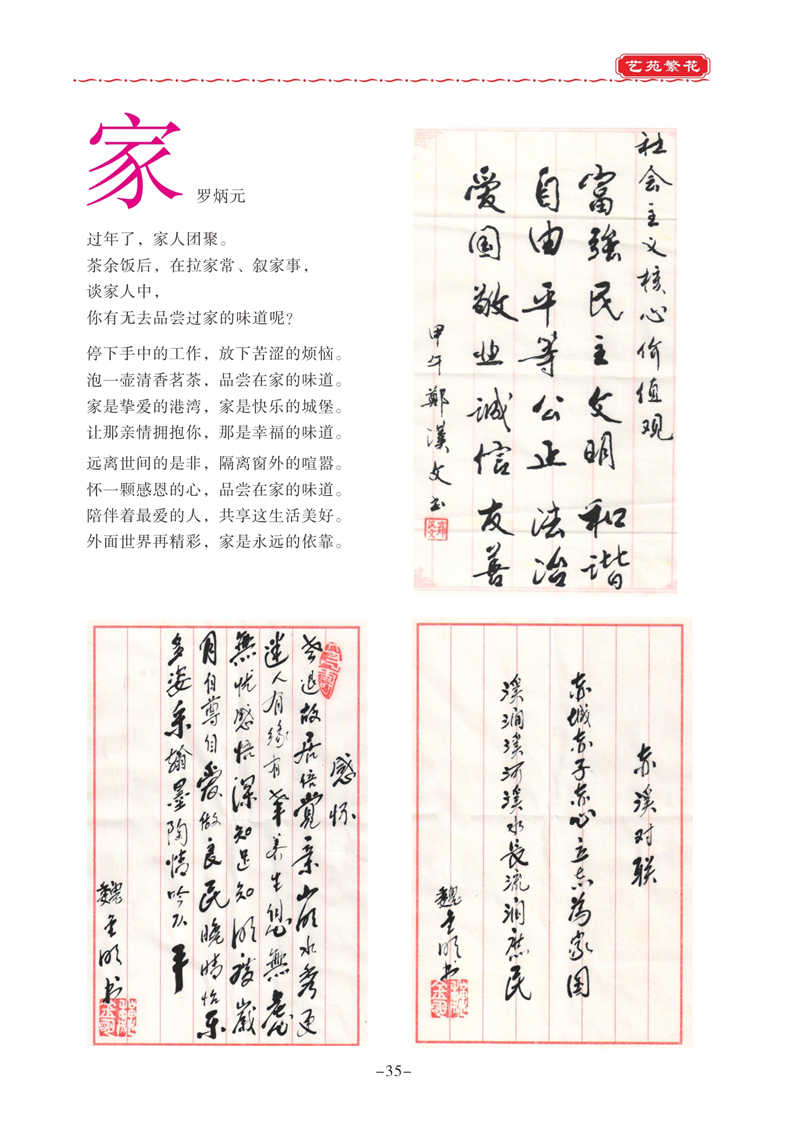 艺苑繁花
家
罗炳元
过年了，家人团聚。
茶余饭后，在拉家常、叙家事，
谈家人中，
你有无去品尝过家的味道呢？
停下手中的工作，放下苦涩的烦恼。
泡一壶清香茗茶，品尝在家的味道。
家是挚爱的港湾，家是快乐的城堡。
让那亲情拥抱你，那是幸福的味道。
远离世间的是非，隔离窗外的喧嚣。
怀一颗感恩的心，品尝在家的味道。
陪伴着最爱的人，共享这生活美好。
外面世界再精彩，家是永远的依靠。
社会主义核心价值观
富强民主文明和谐
自由平等公正法治
爱国敬业诚信友善
甲午鄭漢文书
感怀
老退故居倍覺亲山明水秀更
迷人有缘有养生無虑
無忧感悟深知足知明歲
月自尊自爱做良民晚情怡乐
多姿采翰墨陶情吟不平
魏金明书
赤溪对联
赤城赤子赤心立志為家国
溪涧溪河溪水長流润庶民
魏金明书
-35-